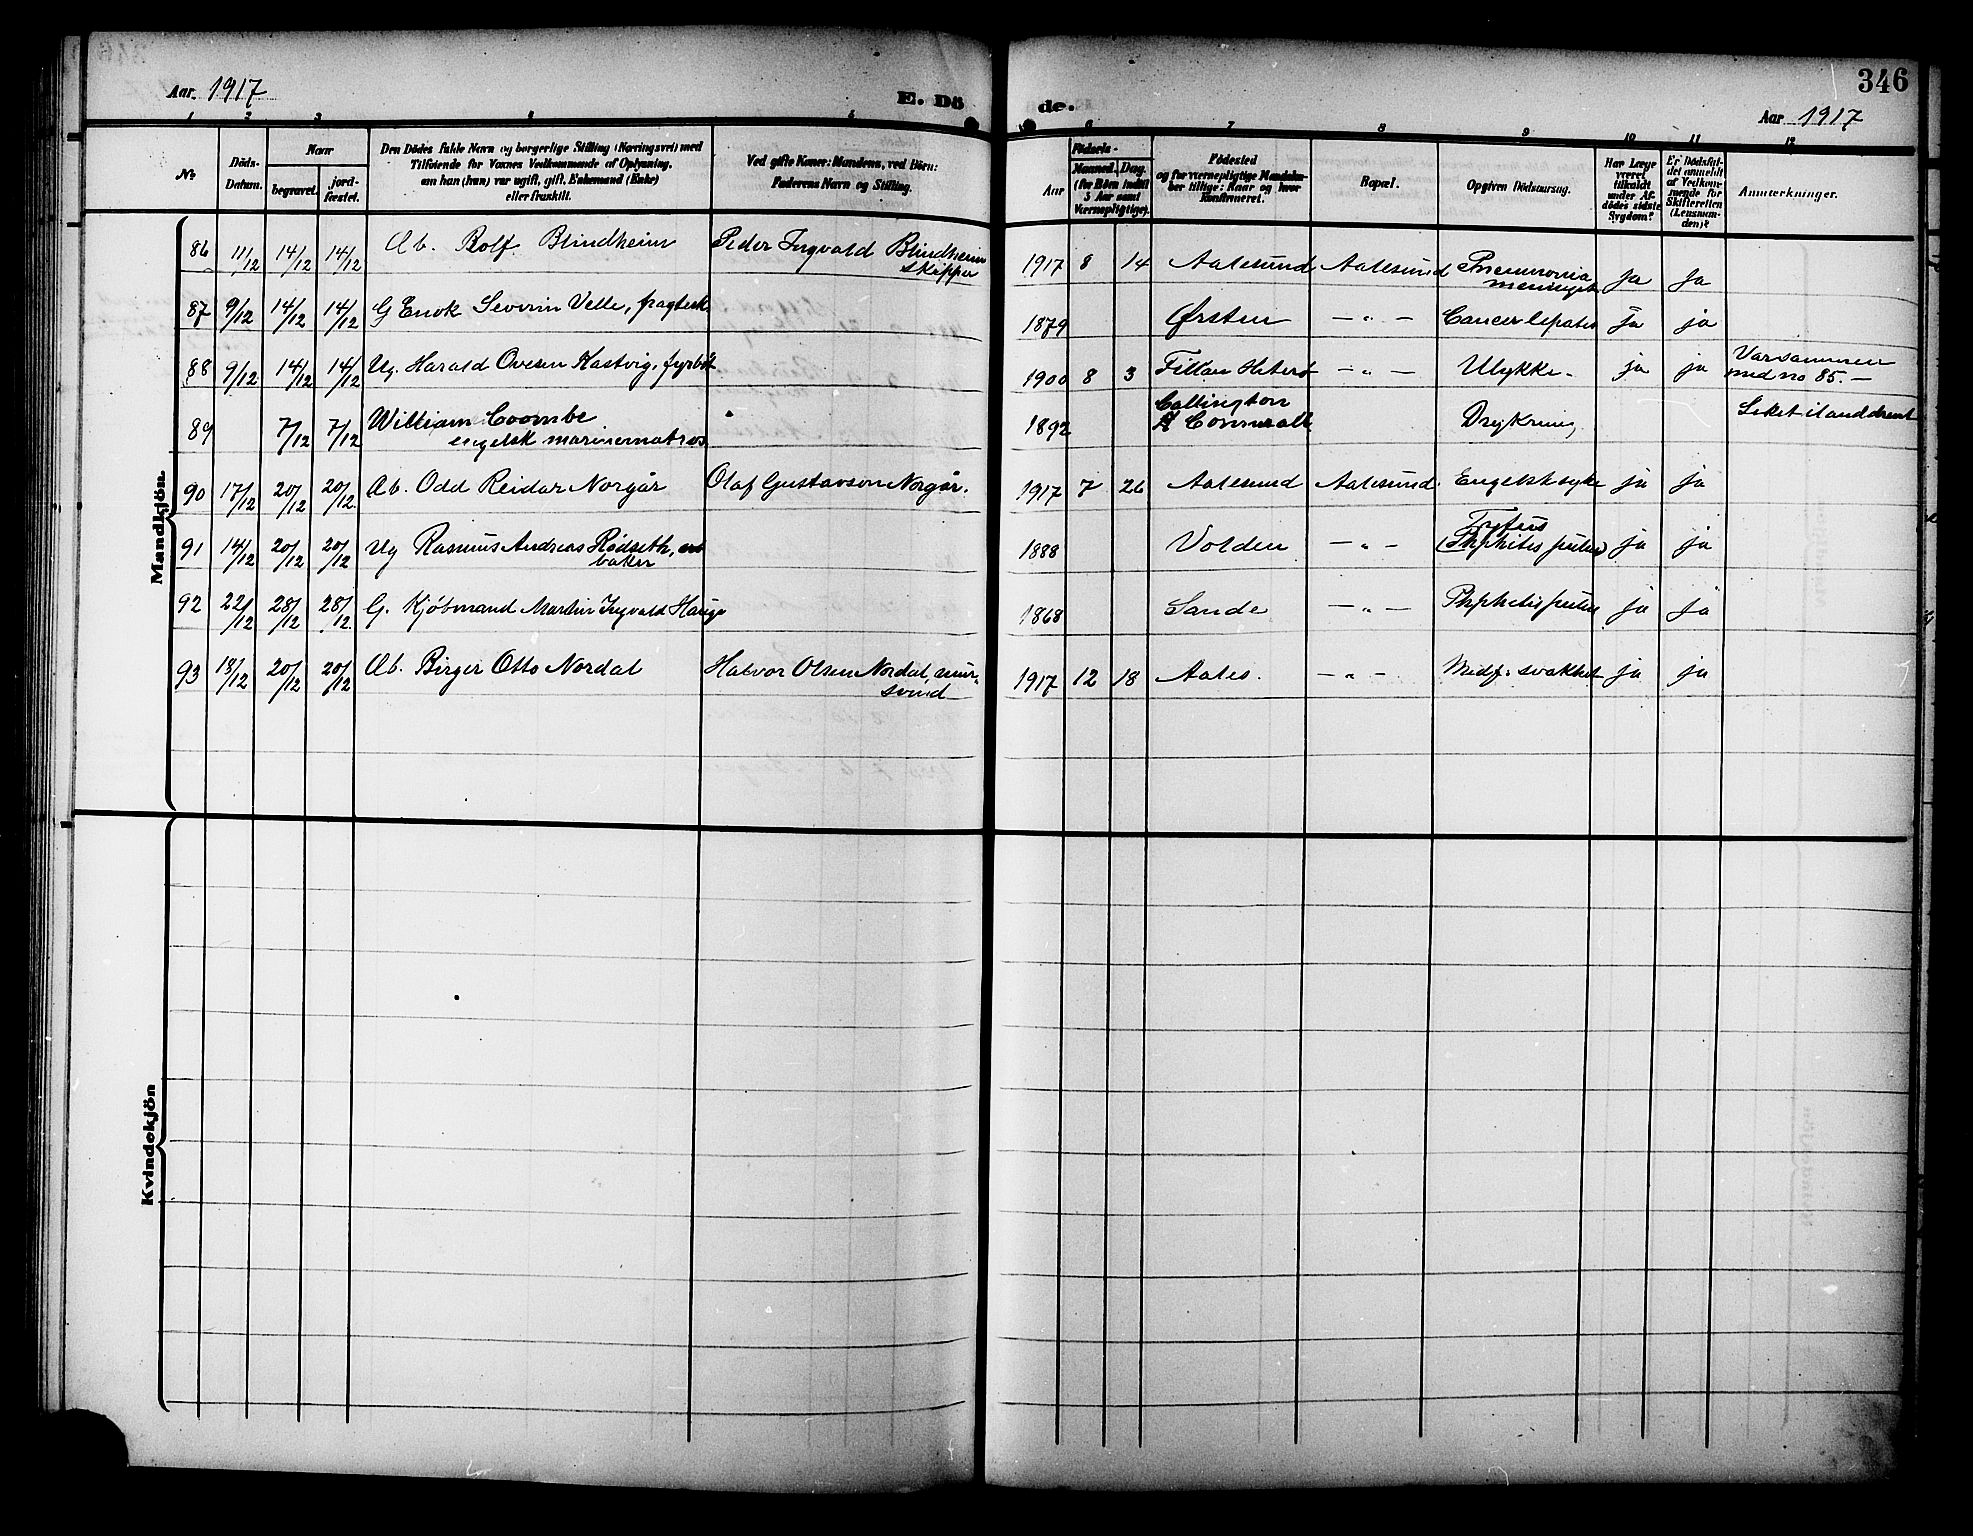 346
Aar 1917
E. Dö de.
Aar 1917
1 2 3 4 5 6 7 8 9 10 11 12
No
Döds-Datum.
Naar
begravet.
jord-fæstet.
Den Dödes fulde Navn og borgerlige Stilling (Næringsvei) med
Tilföiende for Voxnes Vedkommende af Oplysning,
om han (hun) var ugift, gift, Enkemand (Enke)
eller fraskilt.
Ved gifte Koner: Mandens, ved Börn:
Faderens Navn og Stilling.
Fødsels-
Aar
Maaned. Dag.
(for Börn indtil
5 Aar samt
Værnepligtige).
Födested
og for værnepligtige Mandskaber tillige: Naar og hvor
konfirmeret.
Bopæl.
Opgiven Dödsaarsag.
Har Læge
været
tilkaldt
under Afdødes sidste
Sygdom?
Er Dödsfaldet anmeldt
af Vedkommende for
Skifteretten
(Lensmanden)?
Anmærkninger.
Mandkjön.
86 11/12 14/12 14/12 Ab. Rolf Blindheim Peder Ingvald Blindheim skipper 1917 8 14 Aalesund Aalesund Pneumonia ja ja
87 9/12 14/12 14/12 G Enok Severin Velle, fragtesk. 1879 Ørsten — " — Cancer hepatis ja ja
88 9/12 14/12 14/12 Ug. Harald Ovesen Hastvig, fyrbøt 1900 8 3 Fillan Hiterø — " — Ulykke ja ja Var sammen med no 85. —
89 7/12 7/12 William Coombe engelsk marinematros 1892 Callington Cornwall Drukning Liket ilanddrevet
90 17/12 20/12 20/12 Ab. Odd Reidar Norgår Olaf Gustavson Norgår. 1917 7 26 Aalesund Aalesund. Engelsksyke ja ja
91 14/12 20/12 20/12 Ug Rasmus Andreas Rødseth, baker 1888 Volden — " — Tyfus ja ja
92 22/12 28/12 28/12 G. Kjøbmand Martin Ingvald Hauge 1868 Sande — " — ja ja
93 18/12 20/12 20/12 Ab. Birger Otto Nordal Halvor Olsen Nordal, mur-svend 1917 12 18 Aales. — " — Medf. svakhet ja ja
Kvindekjön